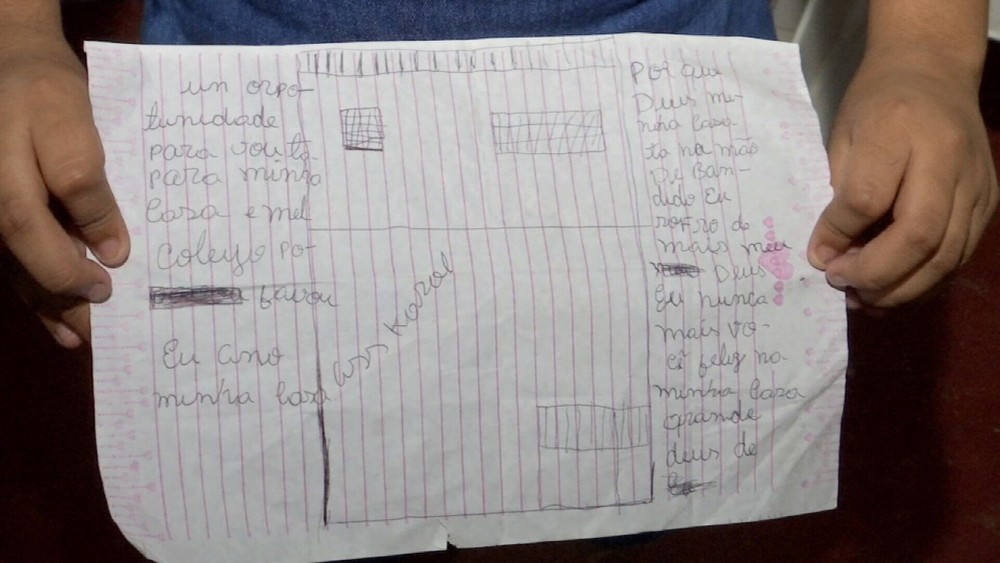 un orpo-
tunidade
para vouta
para minha
Casa e meu
Coleyo po-
favou
Eu amo
minha casa
ass Karol
Por que
Deus mi-
nha casa
ta na mão
De Ban-
dido Eu
sofro de
mais meu
Deus
Eu nunca
mais vo-
feliz na
minha casa
grande
deus de